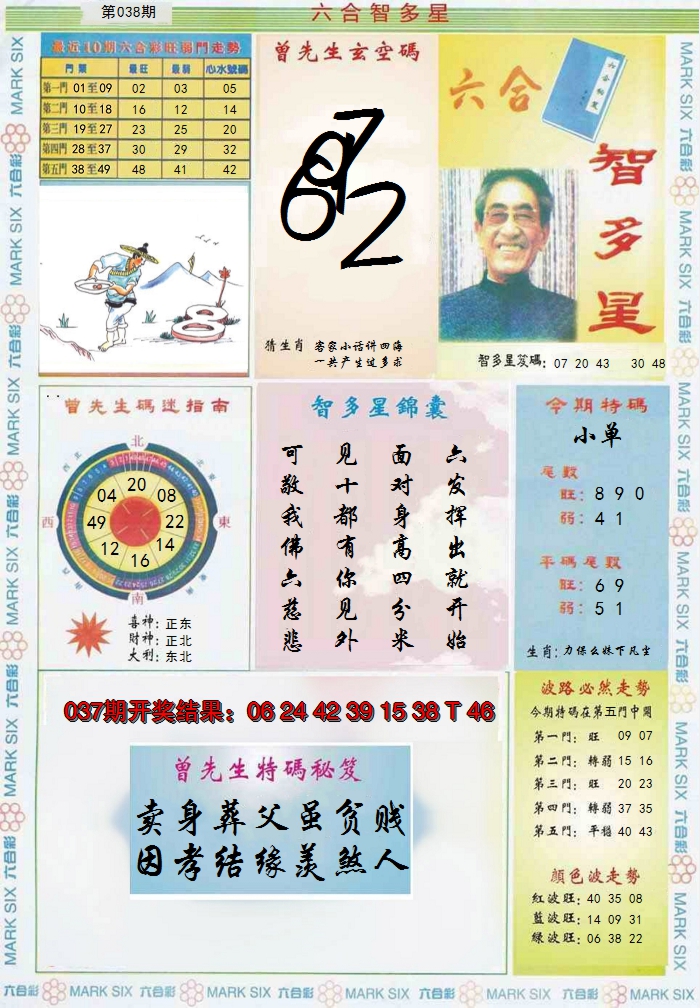 第038期
六合智多星
最近10期六合彩旺弱門走勢
門類 最旺 最弱 心水號碼
第一門 01至09 02 03 05
第二門 10至18 16 12 14
第三門 19至27 23 25 20
第四門 28至37 30 29 32
第五門 38至49 48 41 42
8
曾先生玄空碼
6 9 7 2
猜生肖 客家小话讲四海
一共产生过多求
六合
六合秘笈
智多星
智多星笈碼: 07 20 43 30 48
曾先生碼迷指南
北
西 東
南
20
04 08
49 22
12 14
16
喜神: 正东
财神: 正北
大利: 东北
智多星錦囊
六发挥出就开始
面对身高四分米
见十都有你见外
可敬我佛六慈悲
今期特碼
小单
尾數
旺: 8 9 0
弱: 4 1
平碼尾數
旺: 6 9
弱: 5 1
生肖: 力保么妹下凡尘
037期开奖结果: 06 24 42 39 15 38 T 46
曾先生特碼秘笈
卖身葬父虽贫贱
因孝结缘羡煞人
波路必然走勢
今期特碼在第五門中開
第一門: 旺 09 07
第二門: 轉弱 15 16
第三門: 旺 20 23
第四門: 轉弱 37 35
第五門: 平穩 40 43
顏色波走勢
红波旺: 40 35 08
藍波旺: 14 09 31
绿波旺: 06 38 22
MARK SIX 六合彩